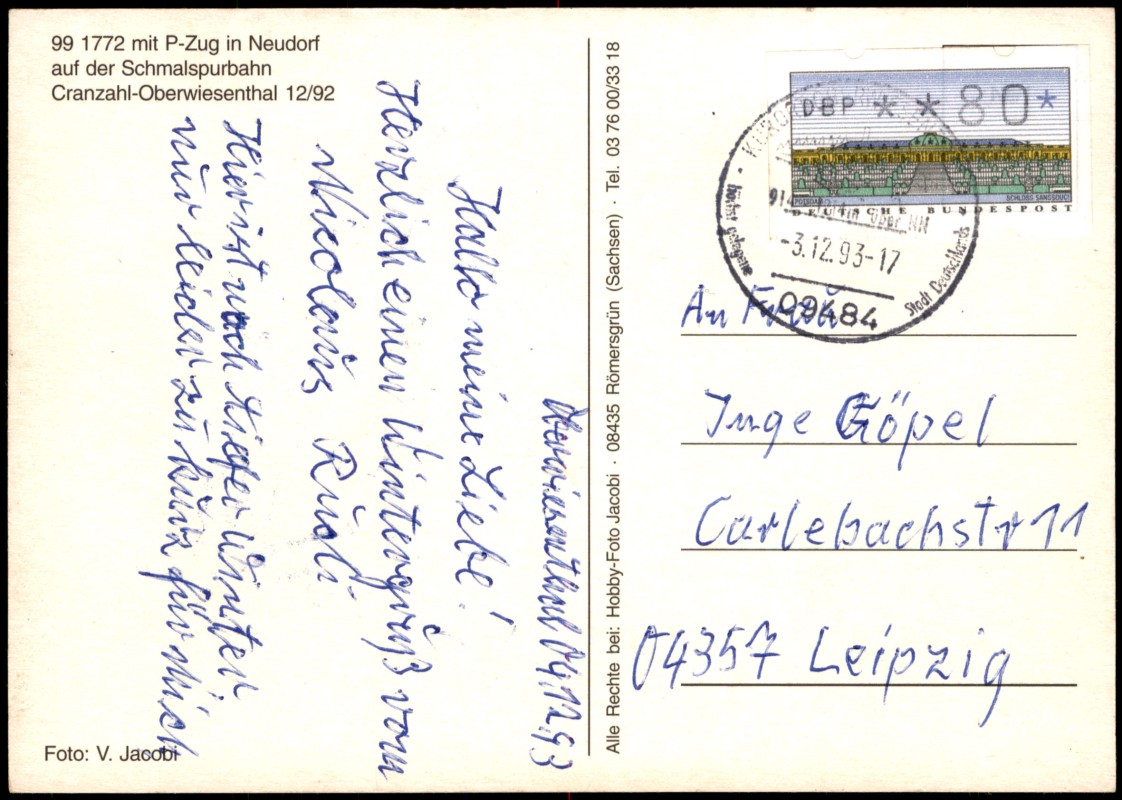 99 1772 mit P-Zug in Neudorf
auf der Schmalspurbahn
Cranzahl-Oberwiesenthal 12/92
Oberwiesenthal 04.12.93
Hallo meine Liebe!
Herzlich einen Wintergruß vom
Nicolaus Rudi.
Hier ist noch tiefer Winter
nur leider zu kurz für mich
Foto: V. Jacobi
Alle Rechte bei: Hobby-Foto Jacobi · 08435 Römersgrün (Sachsen) · Tel. 03 76 00/33 18
DBP **80*
POTSDAM SCHLOSS SANSSOUCI
DEUTSCHE BUNDESPOST
über NN
-3.12.93-17
09484
höchst gelegene Stadt Deutschlands
An Frau
Inge Göpel
Carlebachstr 11
04357 Leipzig